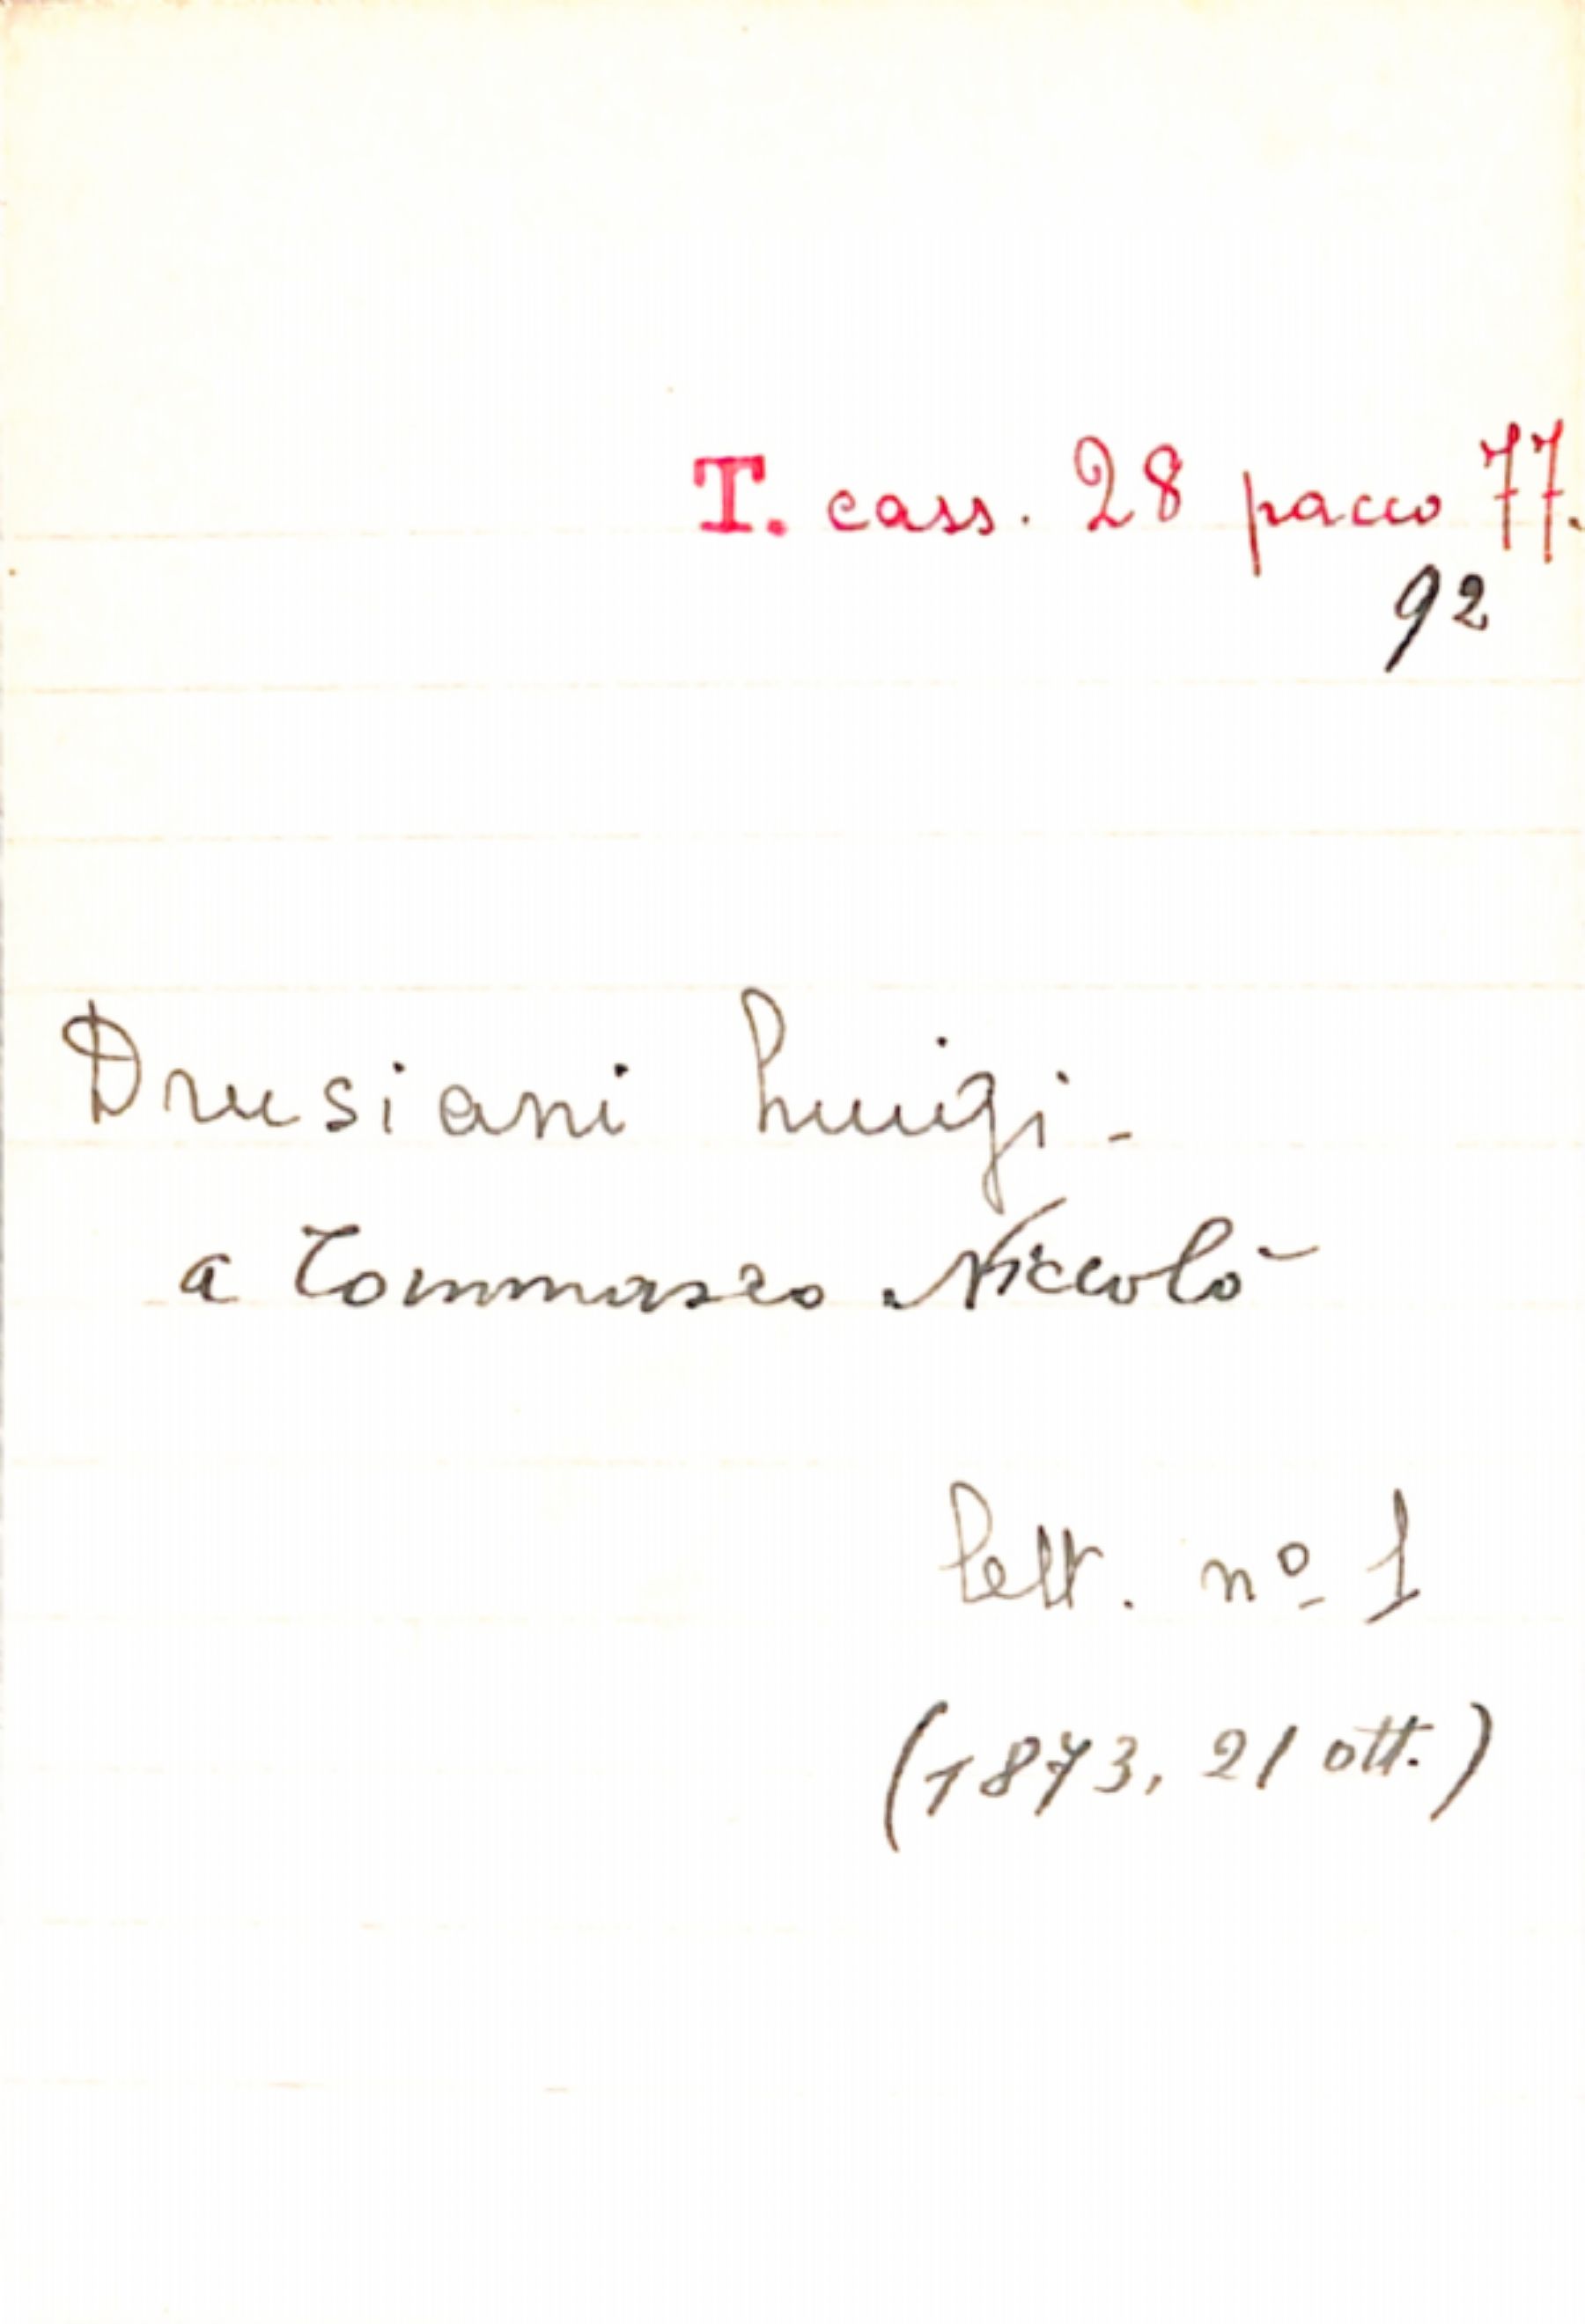 T. cass. 28 pacco 77.
92
Drusiani Luigi -
a Tommaseo Niccolò
lett. nº 1
(1873, 21 ott.)